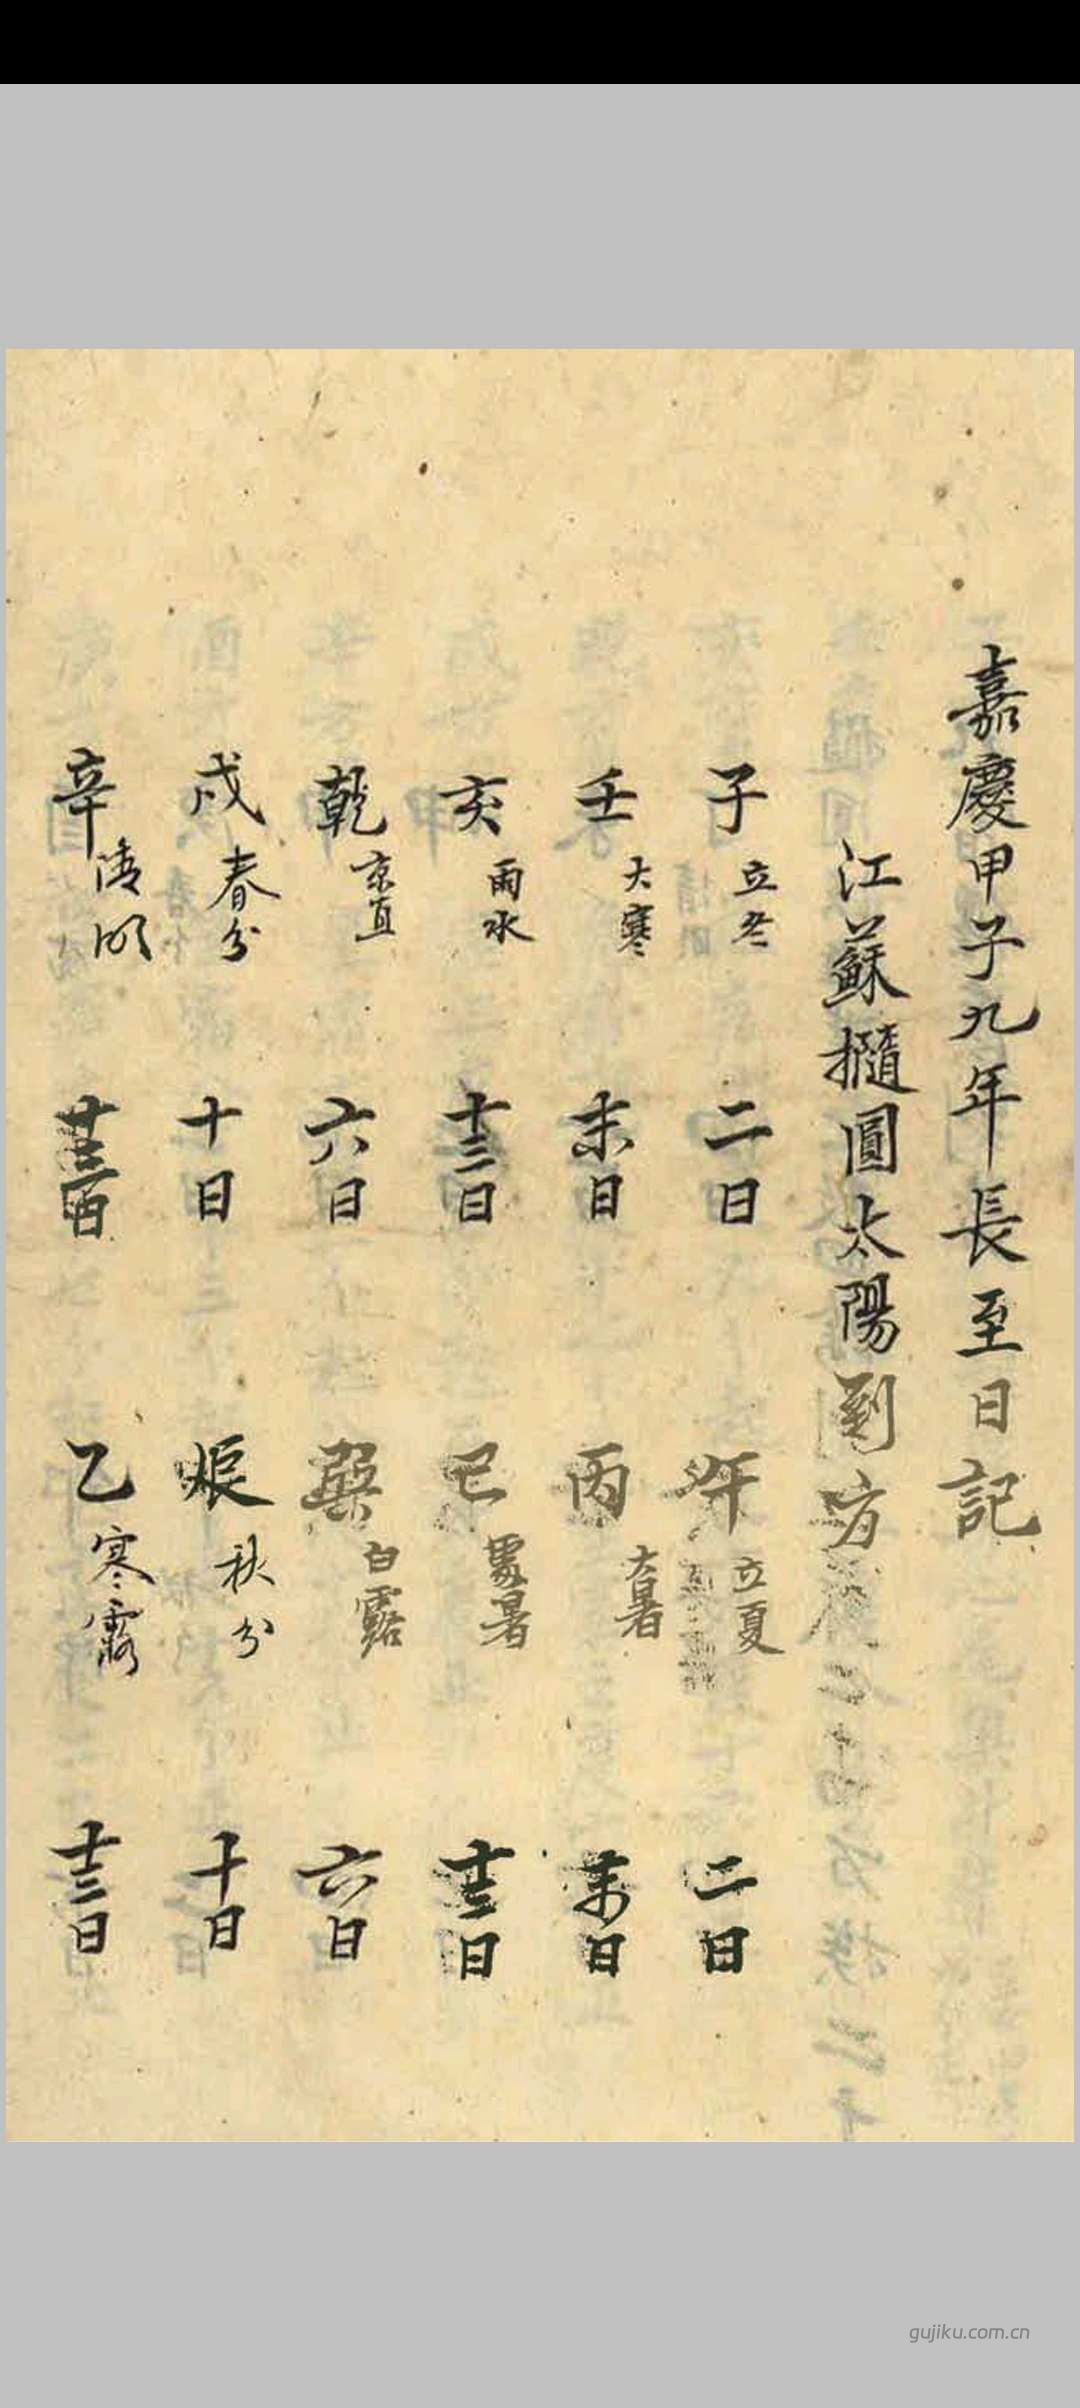 嘉慶甲子九年長至日記
江蘇撱圓太陽到方
子 立冬 二日 午 立夏 二日
壬 大寒 末日 丙 大暑 末日
亥 雨水 十三日 巳 處暑 十三日
乾 京直 六日 巽 白露 六日
戌 春分 十日 辰 秋分 十日
辛 清明 日 乙 寒露 十三日
gujiku.com.cn